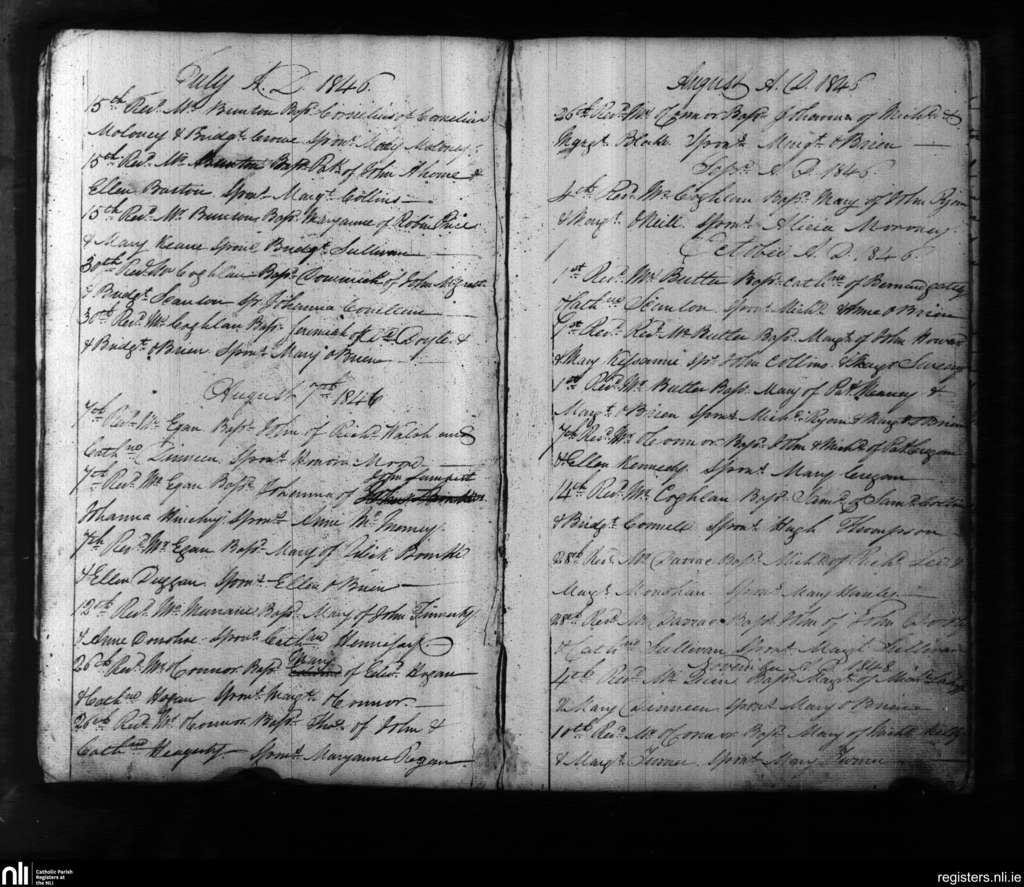 July A. D 1846
15th Revd. Mr. Bunton Bapd. Cornelius of Cornelius
Moloney & Bridgt. Crowe Sponr. Mary Moloney
15th Revd. Mr. Bunton Bapd. Patk of John Ahorne &
Ellen Braston Sponr. Margt. Collins
15th Revd. Mr. Bunton Bapd. Maryanne of Robin Price
& Mary Keane Sponr. Bridgt. Sullivan
30th Revd. Mr Coghlan Bapd. Dominick of John
& Bridgt. Scanlon Sr. Johanna
30th Revd. Mr. Coghlan Bapd. Jeremiah of Doyle &
& Bridgt. O Brien Sponr. Mary O Brien
August 7th 1846
7th Revd. Mr. Egan Bapd. John of Richd. Walsh and
Cathne Dinneen Sponr. Honora Moore
John Tempest
7th Revd. Mr. Egan Bapd. Johanna of
Johanna Hinchy Sponr. Anne Mc
7th Revd. Mr. Egan Bapd. Mary of Ulick Bourke
& Ellen Duggan Sponr. Ellen O Brien
12th Revd. Mr. Bapd. Mary of John Finnerty
& Anne Donohoe Sponr. Cathne
Mary
26th Revd. Mr O Connor Bapd. of Edwd. Hogan
& Cathne Hogan Sponr. Margt. O Connor
26th Revd. Mr. O Connor Bapd. Thos. of John &
Cathne Heagerty Sponr. Maryanne Regan
August A. D. 1846
26th Revd. Mr O Connor Bapd. Johanna of Michl. &
Margt. Blake Sponr. Margt. O Brien
Sepr. A. D. 1846
4th Revd. Mr. Coghlan Bapd. Mary of John Ryan
& Margt. O Neill Sponr. Alicia Moroney
October A. D. 1846
1st Revd. Mr Butler Bapd. Cathne of
& Cathne Scanlon Sponr. Michl. & Anne O Brien
7th Revd. Revd. Mr Butler Bapd. Margt. of John Howard
& Mary Sr. John Collins & Margt Sweeny
1st Revd. Mr. Butler Bapd. Mary of Pat. &
Margt. O Brien Sponr. Michl. Ryan & Margt O Brien
7th Revd. Mr. O Connor Bapd. John & Michl. of Pat
& Ellen Kennedy Sponr. Mary
14th Revd. Mr. Coghlan Bapd. Saml. of Saml.
& Bridgt. Connell Sponr. Hugh Thompson
28th Revd. Mr. Bapd. Michl. of Richd. &
Margt. Monohan Sponr. Mary
28th Revd. Mr. Bapd. John of John
& Cathne Sullivan Sponr. Margt. Sullivan
November A. D. 1846
4th Revd. Mr. Bapd. Margt. of
& Mary Dinneen Sponr. Mary O Brien
10th Revd. Mr. O Connor Bapd. Mary of Michl. Kelly
& Margt. Turner Sponr. Mary
nli
Catholic Parish
Registers at
the NLI
registers.nli.ie